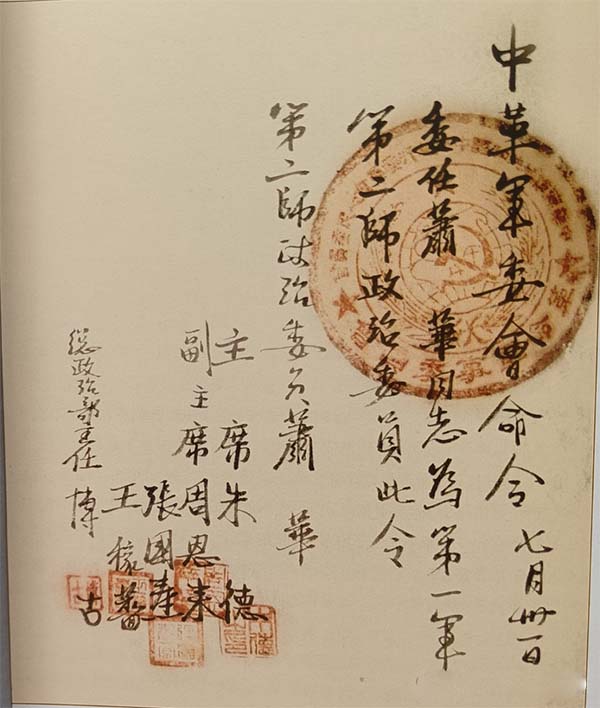 中革軍委會命令 七月卅一日
委任蕭 華同志為第一軍
第二師政治委員此令
第二師政治委員蕭 華
主 席 朱 德
副主席 周恩来
張國燾
王稼蔷
總政治部主任 博 古